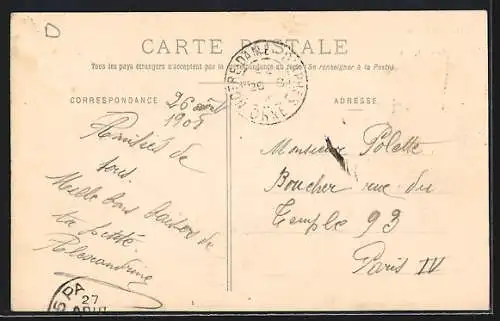 CARTE POSTALE
Tous les pays étrangers n'acceptent pas la correspondance au recto (Se renseigner à la Poste).
CORRESPONDANCE
ADRESSE
26 août
1905
Amitiés de
tous.
Mille bons baisers de
ta petite
Alexandrine
Monsieur Polette
Boucher rue du
Temple 93
Paris IV
ORNE
27